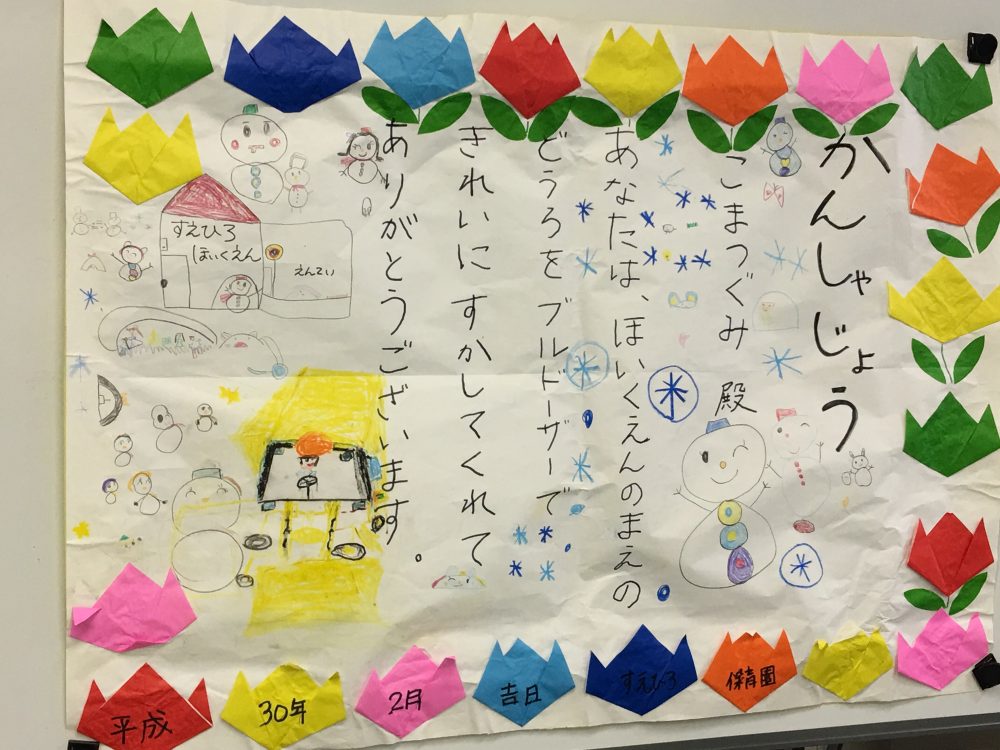 かんしゃじょう
こまつぐみ 殿
あなたは、ほいくえんのまえの
どうろをブルドーザーで
きれいにすかしてくれて
ありがとうございます。
すえひろ
ほいくえん
えんてい
平成
30年
2月
吉日
すえひろ
保育園